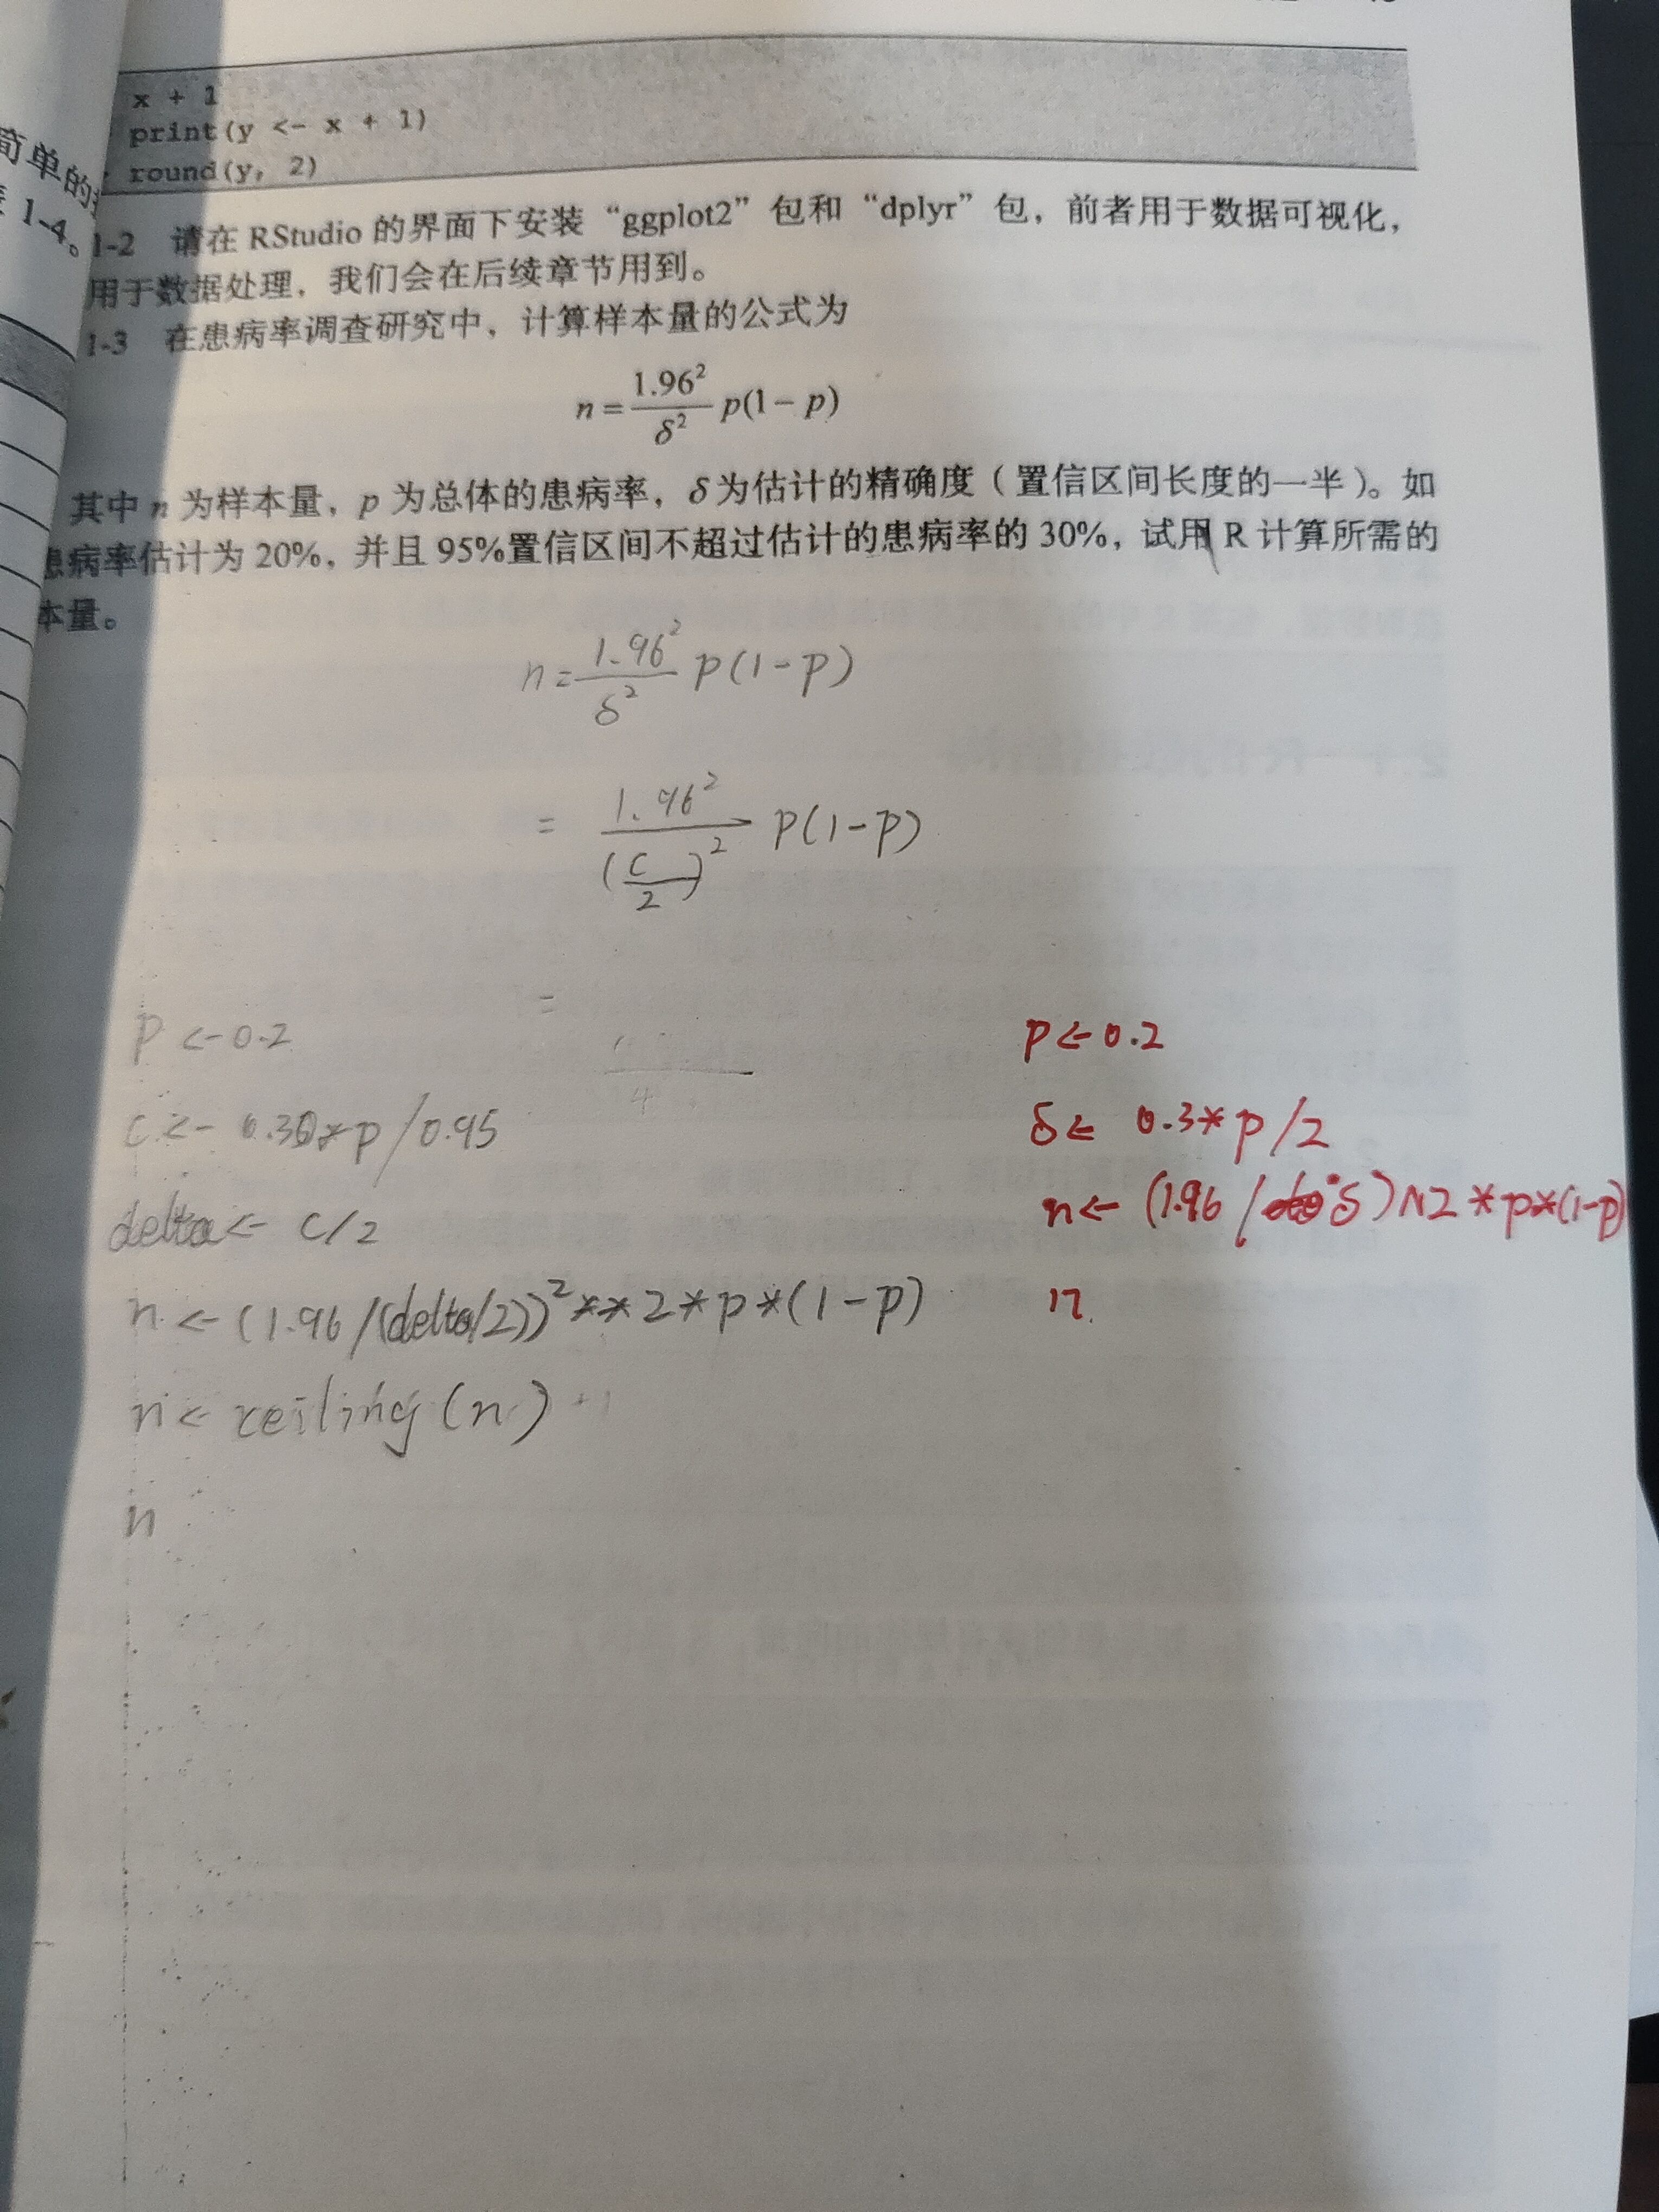 简单的
1-4。
x + 1
print(y <- x + 1)
round(y, 2)
1-2 请在 RStudio 的界面下安装“ggplot2”包和“dplyr”包，前者用于数据可视化，
用于数据处理，我们会在后续章节用到。
1-3 在患病率调查研究中，计算样本量的公式为
n = 1.96² / δ² p(1 − p)
其中 n 为样本量，p 为总体的患病率，δ 为估计的精确度（置信区间长度的一半）。如
患病率估计为 20%，并且 95%置信区间不超过估计的患病率的 30%，试用 R 计算所需的
本量。
n = 1.96² / δ² p(1-p)
= 1.96² / (c/2)² p(1-p)
=
4
p <- 0.2
c <- 0.30*p/0.95
delta <- c/2
n <- (1.96/(delta/2))² **2*p*(1-p)
n <- ceiling(n)
n
p <- 0.2
δ <- 0.3*p/2
n <- (1.96/δ)^2*p*(1-p)
n